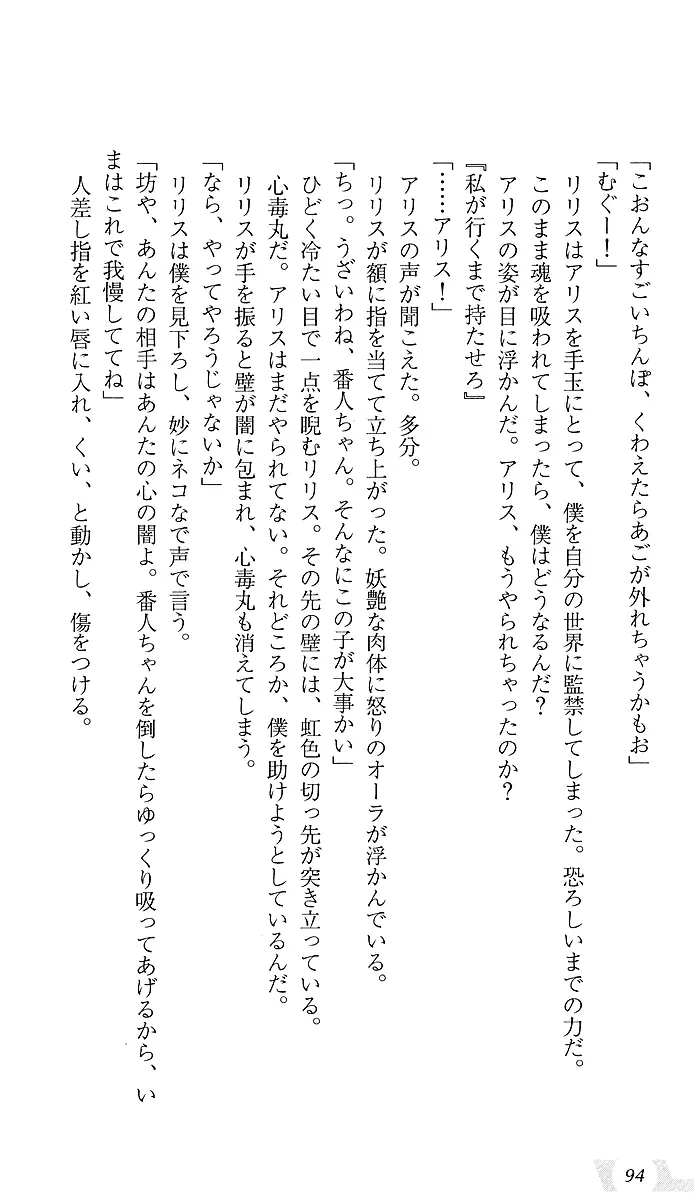 「こおんなすごいちんぽ、くわえたらあごが外れちゃうかもお」
「むぐー！」
リリスはアリスを手玉にとって、僕を自分の世界に監禁してしまった。恐ろしいまでの力だ。
このまま魂を吸われてしまったら、僕はどうなるんだ？
アリスの姿が目に浮かんだ。アリス、もうやられちゃったのか？
『私が行くまで持たせろ』
「……アリス！」
アリスの声が聞こえた。多分。
リリスが額に指を当てて立ち上がった。妖艶な肉体に怒りのオーラが浮かんでいる。
「ちっ。うざいわね、番人ちゃん。そんなにこの子が大事かい」
ひどく冷たい目で一点を睨むリリス。その先の壁には、虹色の切っ先が突き立っている。
心毒丸だ。アリスはまだやられてない。それどころか、僕を助けようとしているんだ。
リリスが手を振ると壁が闇に包まれ、心毒丸も消えてしまう。
「なら、やってやろうじゃないか」
リリスは僕を見下ろし、妙にネコなで声で言う。
「坊や、あんたの相手はあんたの心の闇よ。番人ちゃんを倒したらゆっくり吸ってあげるから、い
まはこれで我慢しててね」
人差し指を紅い唇に入れ、くい、と動かし、傷をつける。
94